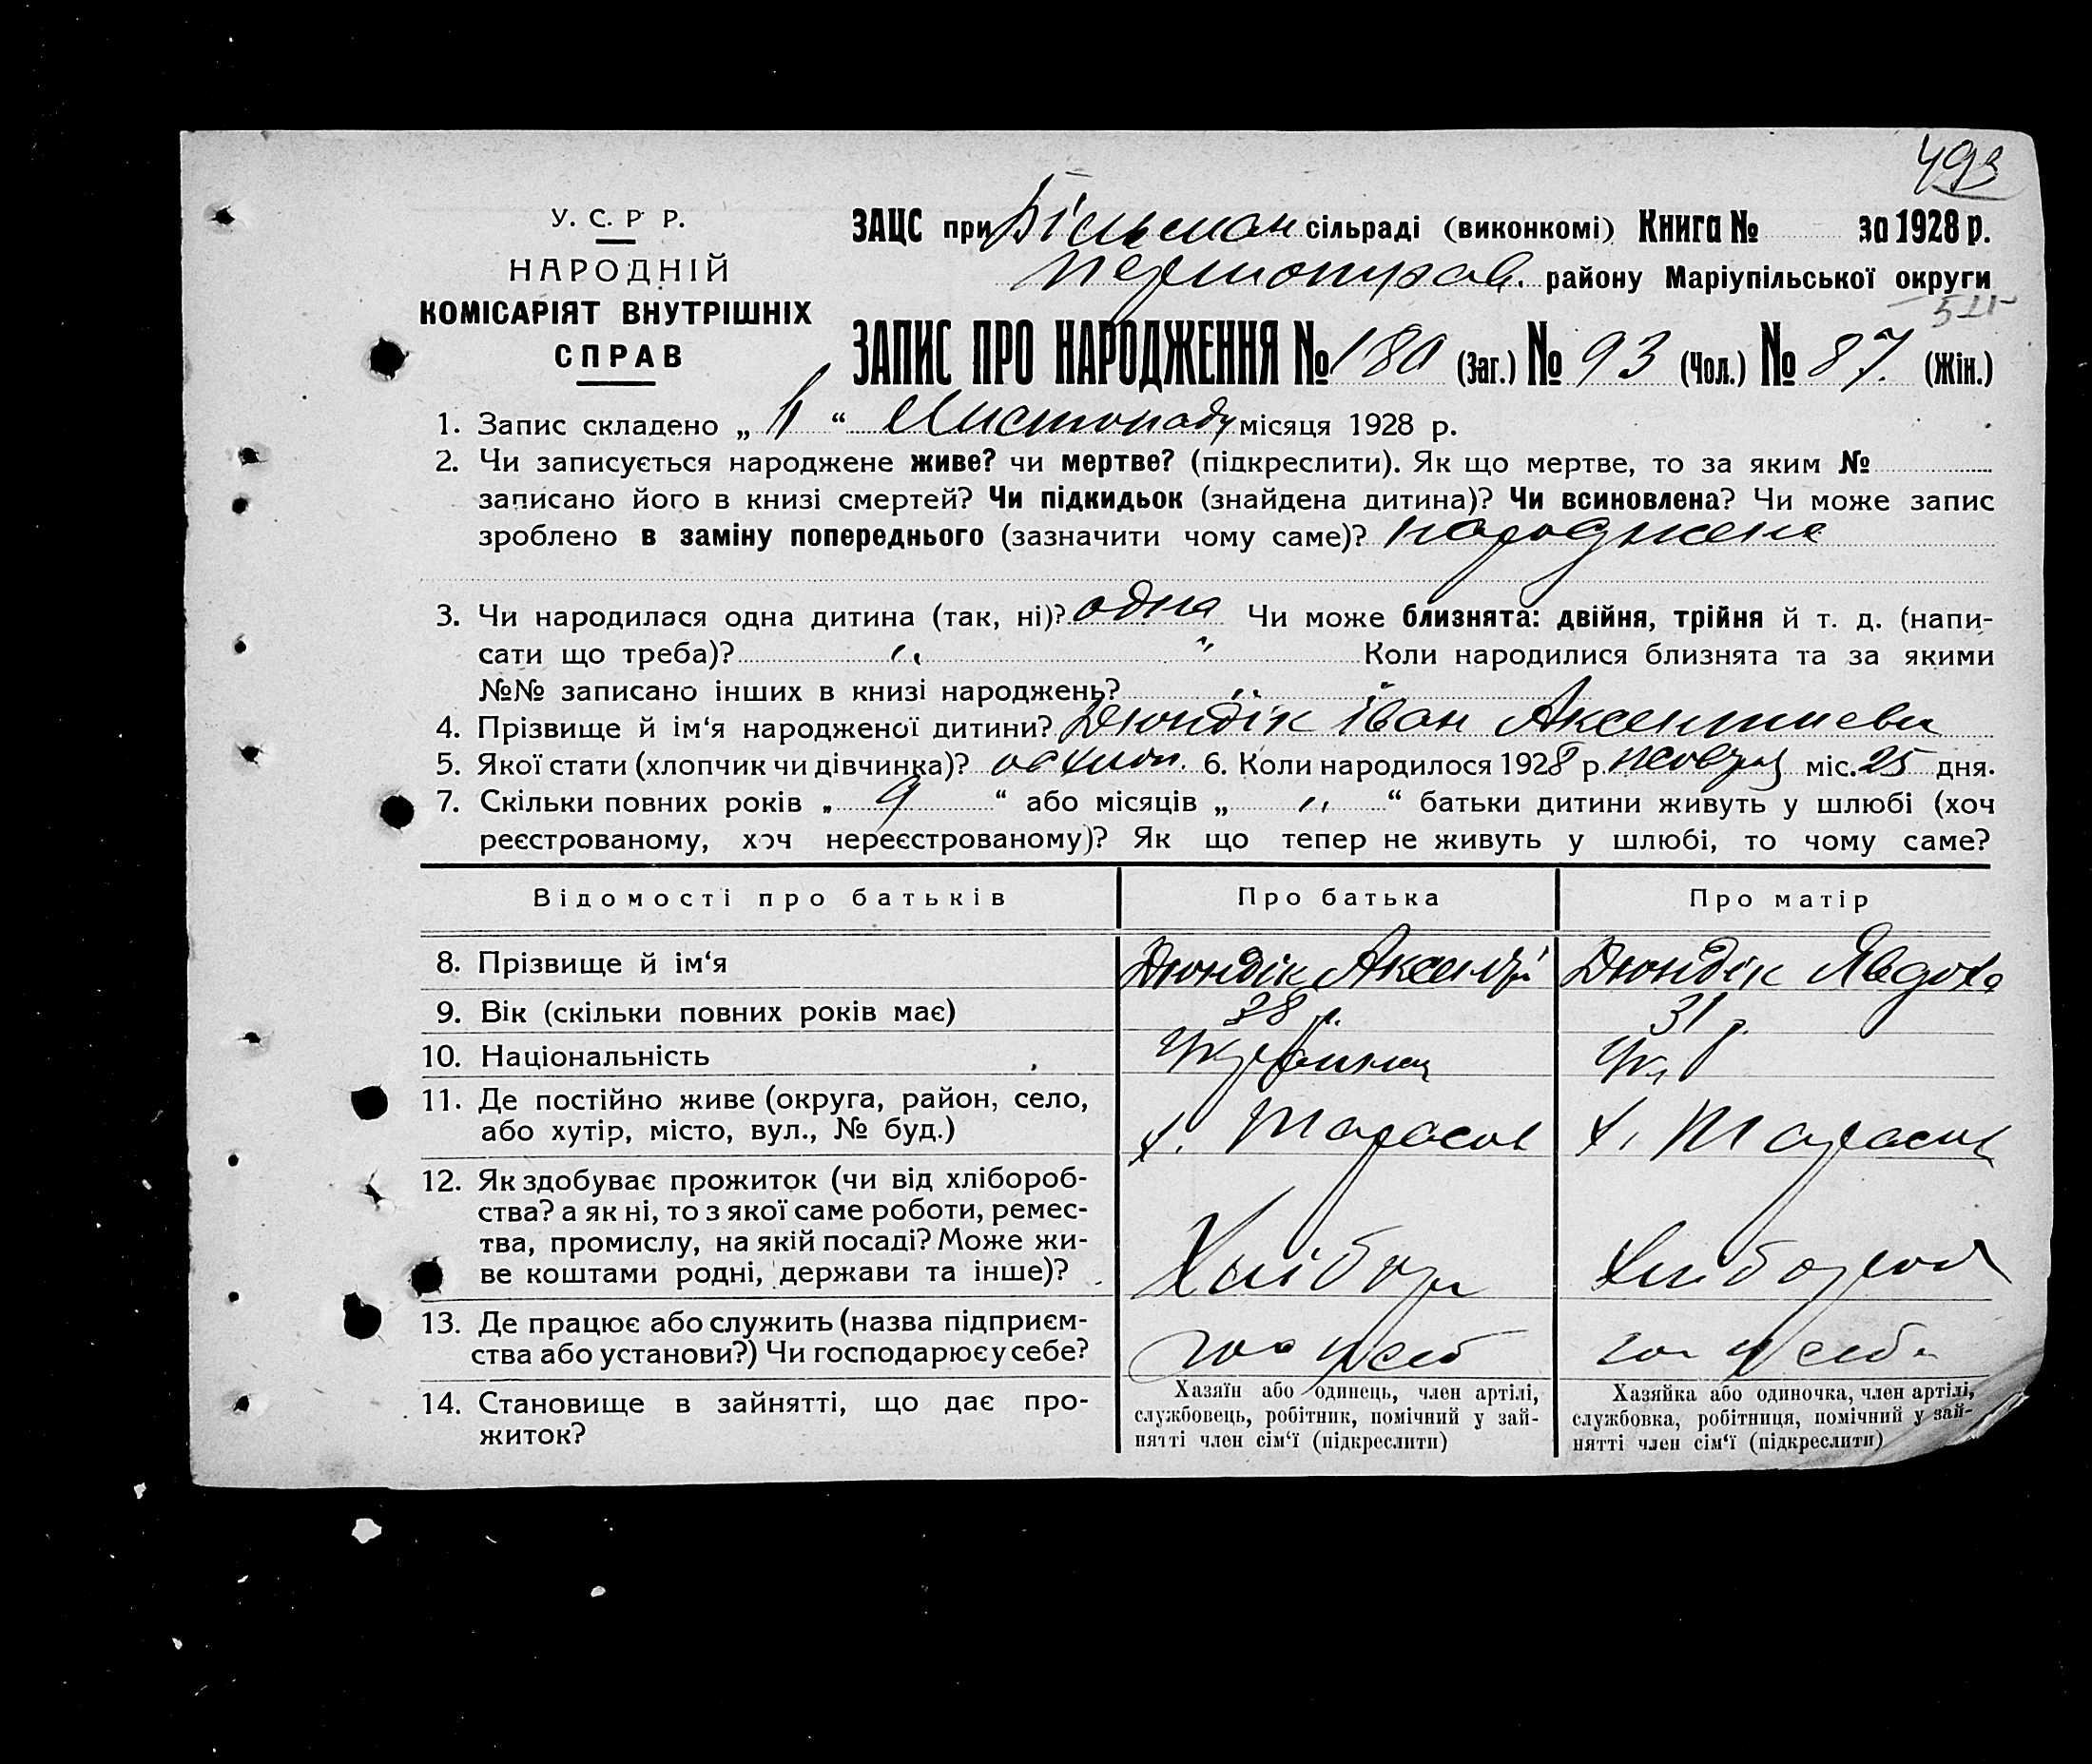 493
У. С. Р Р.
НАРОДНІЙ
КОМІСАРІЯТ ВНУТРІШНІХ
СПРАВ
ЗАЦС при Більман сільраді (виконкомі) Книга № за 1928 р.
першотрав. району Маріупільської округи
ЗАПИС ПРО НАРОДЖЕННЯ № 180 (Заг.) № 93 (Чол.) № 87. (Жін.)
1. Запис складено „ “ Листопаду місяця 1928 р.
2. Чи записується народжене живе? чи мертве? (підкреслити). Як що мертве, то за яким №
записано його в книзі смертей? Чи підкидьок (знайдена дитина)? Чи всиновлена? Чи може запис
зроблено в заміну попереднього (зазначити чому саме)? народжене
3. Чи народилася одна дитина (так, ні)? одна Чи може близнята: двійня, трійня й т. д. (напи-
сати що треба)? „ „ Коли народилися близнята та за якими
№№ записано інших в книзі народжень? „ „
4. Прізвище й ім‘я народженої дитини? Дюндік Іван Аксентиеви
5. Якої стати (хлопчик чи дівчинка)? 6. Коли народилося 1928 р. жовтня міс. 25 дня.
7. Скільки повних років „ 9 “ або місяців „ „ “ батьки дитини живуть у шлюбі (хоч
реєстрованому, хоч нереєстрованому)? Як що тепер не живуть у шлюбі, то чому саме?
Відомості про батьків Про батька Про матір
8. Прізвище й ім‘я Дюндік Аксентій Дюндік Явдоха
9. Вік (скільки повних років має) 38 р. 31 р.
10. Національність Українец Ук.
11. Де постійно живе (округа, район, село,
або хутір, місто, вул., № буд.) х. Тарасов х. Тарасов
12. Як здобуває прожиток (чи від хлібороб-
ства? а як ні, то з якої саме роботи, ремес-
тва, промислу, на якій посаді? Може жи-
ве коштами родні, держави та інше)? Хлібор Хлібороб
13. Де працює або служить (назва підприєм-
ства або установи?) Чи господарює у себе? гос у себ гос у себе
14. Становище в зайнятті, що дає про-
житок?
Хазяїн або одинець, член артілі,
службовець, робітник, помічний у зай-
нятті член сім‘ї (підкреслити)
Хазяйка або одиночка, член артілі,
службовка, робітниця, помічний у зай-
нятті член сім‘ї (підкреслити)